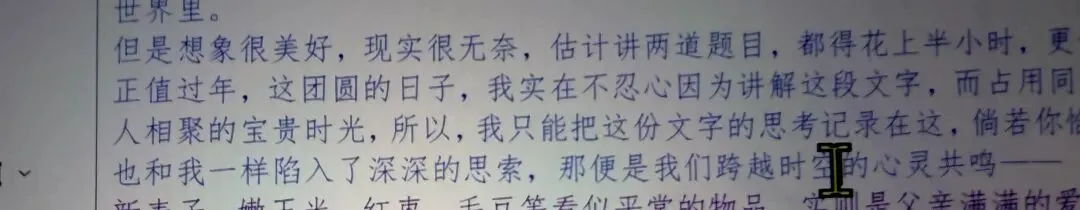 世界里。
但是想象很美好，现实很无奈，估计讲两道题目，都得花上半小时，更
正值过年，这团圆的日子，我实在不忍心因为讲解这段文字，而占用同
人相聚的宝贵时光，所以，我只能把这份文字的思考记录在这，倘若你恰
也和我一样陷入了深深的思索，那便是我们跨越时空的心灵共鸣——
毛豆等看似平常的物品，实则是父亲满满的爱